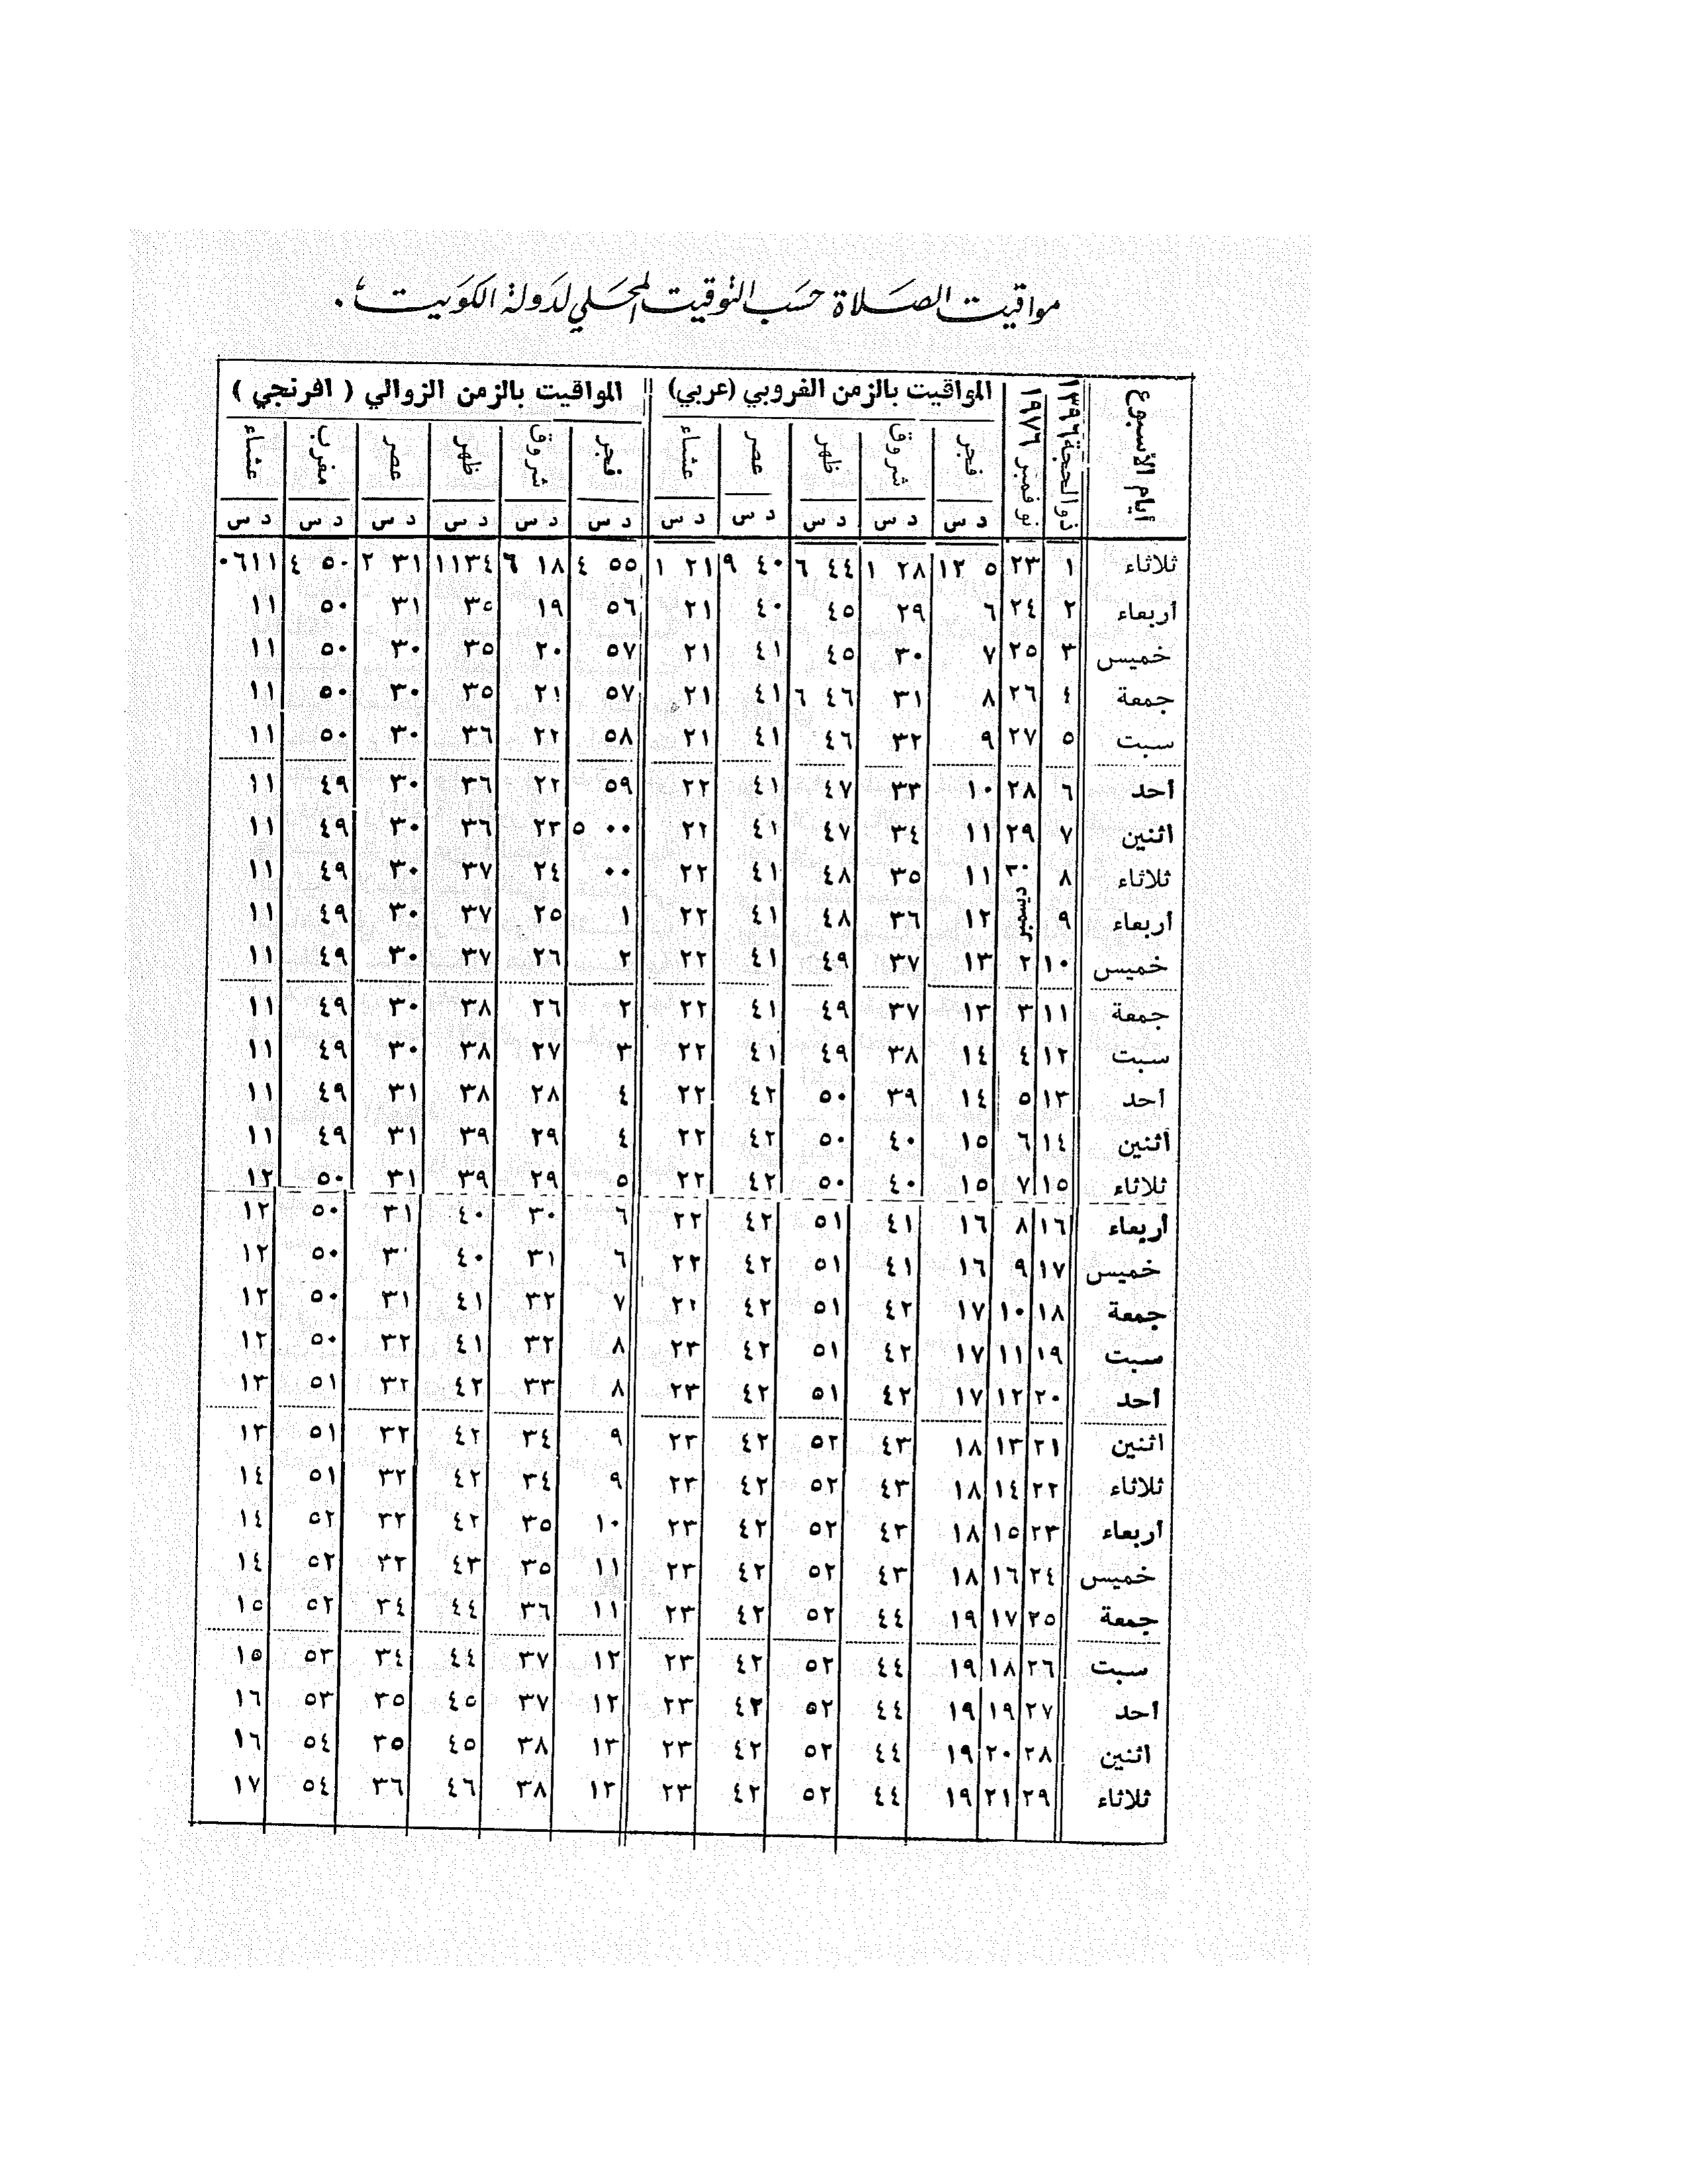 مواقيت الصلاة حسب التوقيت المحلي لدولة الكويت .
أيام الأسبوع ذو الحجة ١٣٩٦ نوفمبر ١٩٧٦ المواقيت بالزمن الغروبي (عربي) المواقيت بالزمن الزوالي ( افرنجي )
فجر شروق ظهر عصر عشاء فجر شروق ظهر عصر مغرب عشاء
د س د س د س د س د س د س د س د س د س د س د س
ثلاثاء ١ ٢٣ ٥ ١٢ ٢٨ ١ ٤٤ ٦ ٤٠ ٩ ٢١ ١ ٥٥ ٤ ١٨ ٦ ٣٤ ١١ ٣١ ٢ ٥٠ ٤ ١١ ٠٦
أربعاء ٢ ٢٤ ٦ ٢٩ ٤٥ ٤٠ ٢١ ٥٦ ١٩ ٣٥ ٣١ ٥٠ ١١
خميس ٣ ٢٥ ٧ ٣٠ ٤٥ ٤١ ٢١ ٥٧ ٢٠ ٣٥ ٣٠ ٥٠ ١١
جمعة ٤ ٢٦ ٨ ٣١ ٤٦ ٦ ٤١ ٢١ ٥٧ ٢١ ٣٥ ٣٠ ٥٠ ١١
سبت ٥ ٢٧ ٩ ٣٢ ٤٦ ٤١ ٢١ ٥٨ ٢٢ ٣٦ ٣٠ ٥٠ ١١
أحد ٦ ٢٨ ١٠ ٣٣ ٤٧ ٤١ ٢٢ ٥٩ ٢٢ ٣٦ ٣٠ ٤٩ ١١
اثنين ٧ ٢٩ ١١ ٣٤ ٤٧ ٤١ ٢٢ ٠٠ ٥ ٢٣ ٣٦ ٣٠ ٤٩ ١١
ثلاثاء ٨ ٣٠ ١١ ٣٥ ٤٨ ٤١ ٢٢ ٠٠ ٢٤ ٣٧ ٣٠ ٤٩ ١١
أربعاء ٩ ديسمبر ١٢ ٣٦ ٤٨ ٤١ ٢٢ ١ ٢٥ ٣٧ ٣٠ ٤٩ ١١
خميس ١٠ ٢ ١٣ ٣٧ ٤٩ ٤١ ٢٢ ٢ ٢٦ ٣٧ ٣٠ ٤٩ ١١
جمعة ١١ ٣ ١٣ ٣٧ ٤٩ ٤١ ٢٢ ٢ ٢٦ ٣٨ ٣٠ ٤٩ ١١
سبت ١٢ ٤ ١٤ ٣٨ ٤٩ ٤١ ٢٢ ٣ ٢٧ ٣٨ ٣٠ ٤٩ ١١
أحد ١٣ ٥ ١٤ ٣٩ ٥٠ ٤٢ ٢٢ ٤ ٢٨ ٣٨ ٣١ ٤٩ ١١
اثنين ١٤ ٦ ١٥ ٤٠ ٥٠ ٤٢ ٢٢ ٤ ٢٩ ٣٩ ٣١ ٤٩ ١١
ثلاثاء ١٥ ٧ ١٥ ٤٠ ٥٠ ٤٢ ٢٢ ٥ ٢٩ ٣٩ ٣١ ٥٠ ١٢
أربعاء ١٦ ٨ ١٦ ٤١ ٥١ ٤٢ ٢٢ ٦ ٣٠ ٤٠ ٣١ ٥٠ ١٢
خميس ١٧ ٩ ١٦ ٤١ ٥١ ٤٢ ٢٢ ٦ ٣١ ٤٠ ٥٠ ١٢
جمعة ١٨ ١٠ ١٧ ٤٢ ٥١ ٤٢ ٧ ٣٢ ٤١ ٣١ ٥٠ ١٢
سبت ١٩ ١١ ١٧ ٤٢ ٥١ ٤٢ ٢٣ ٨ ٣٢ ٤١ ٣٢ ٥٠ ١٢
أحد ٢٠ ١٢ ١٧ ٤٢ ٥١ ٤٢ ٢٣ ٨ ٣٣ ٤٢ ٣٢ ٥١ ١٣
اثنين ٢١ ١٣ ١٨ ٤٣ ٥٢ ٤٢ ٢٣ ٩ ٣٤ ٤٢ ٣٢ ٥١ ١٣
ثلاثاء ٢٢ ١٤ ١٨ ٤٣ ٥٢ ٤٢ ٢٣ ٩ ٣٤ ٤٢ ٣٢ ٥١ ١٤
أربعاء ٢٣ ١٥ ١٨ ٤٣ ٥٢ ٤٢ ٢٣ ١٠ ٣٥ ٤٢ ٥٢ ١٤
خميس ٢٤ ١٦ ١٨ ٤٣ ٥٢ ٤٢ ٢٣ ١١ ٣٥ ٤٣ ٥٢ ١٤
جمعة ٢٥ ١٧ ١٩ ٤٤ ٥٢ ٤٢ ٢٣ ١١ ٣٦ ٤٤ ٣٤ ٥٢ ١٥
سبت ٢٦ ١٨ ١٩ ٤٤ ٥٢ ٤٢ ٢٣ ١٢ ٣٧ ٤٤ ٣٤ ٥٣ ١٥
أحد ٢٧ ١٩ ١٩ ٤٤ ٥٢ ٤٢ ٢٣ ١٢ ٣٧ ٤٥ ٣٥ ٥٣ ١٦
اثنين ٢٨ ٢٠ ١٩ ٤٤ ٥٢ ٤٢ ٢٣ ١٣ ٣٨ ٤٥ ٣٥ ٥٤ ١٦
ثلاثاء ٢٩ ٢١ ١٩ ٤٤ ٥٢ ٤٢ ٢٣ ١٣ ٣٨ ٤٦ ٣٦ ٥٤ ١٧